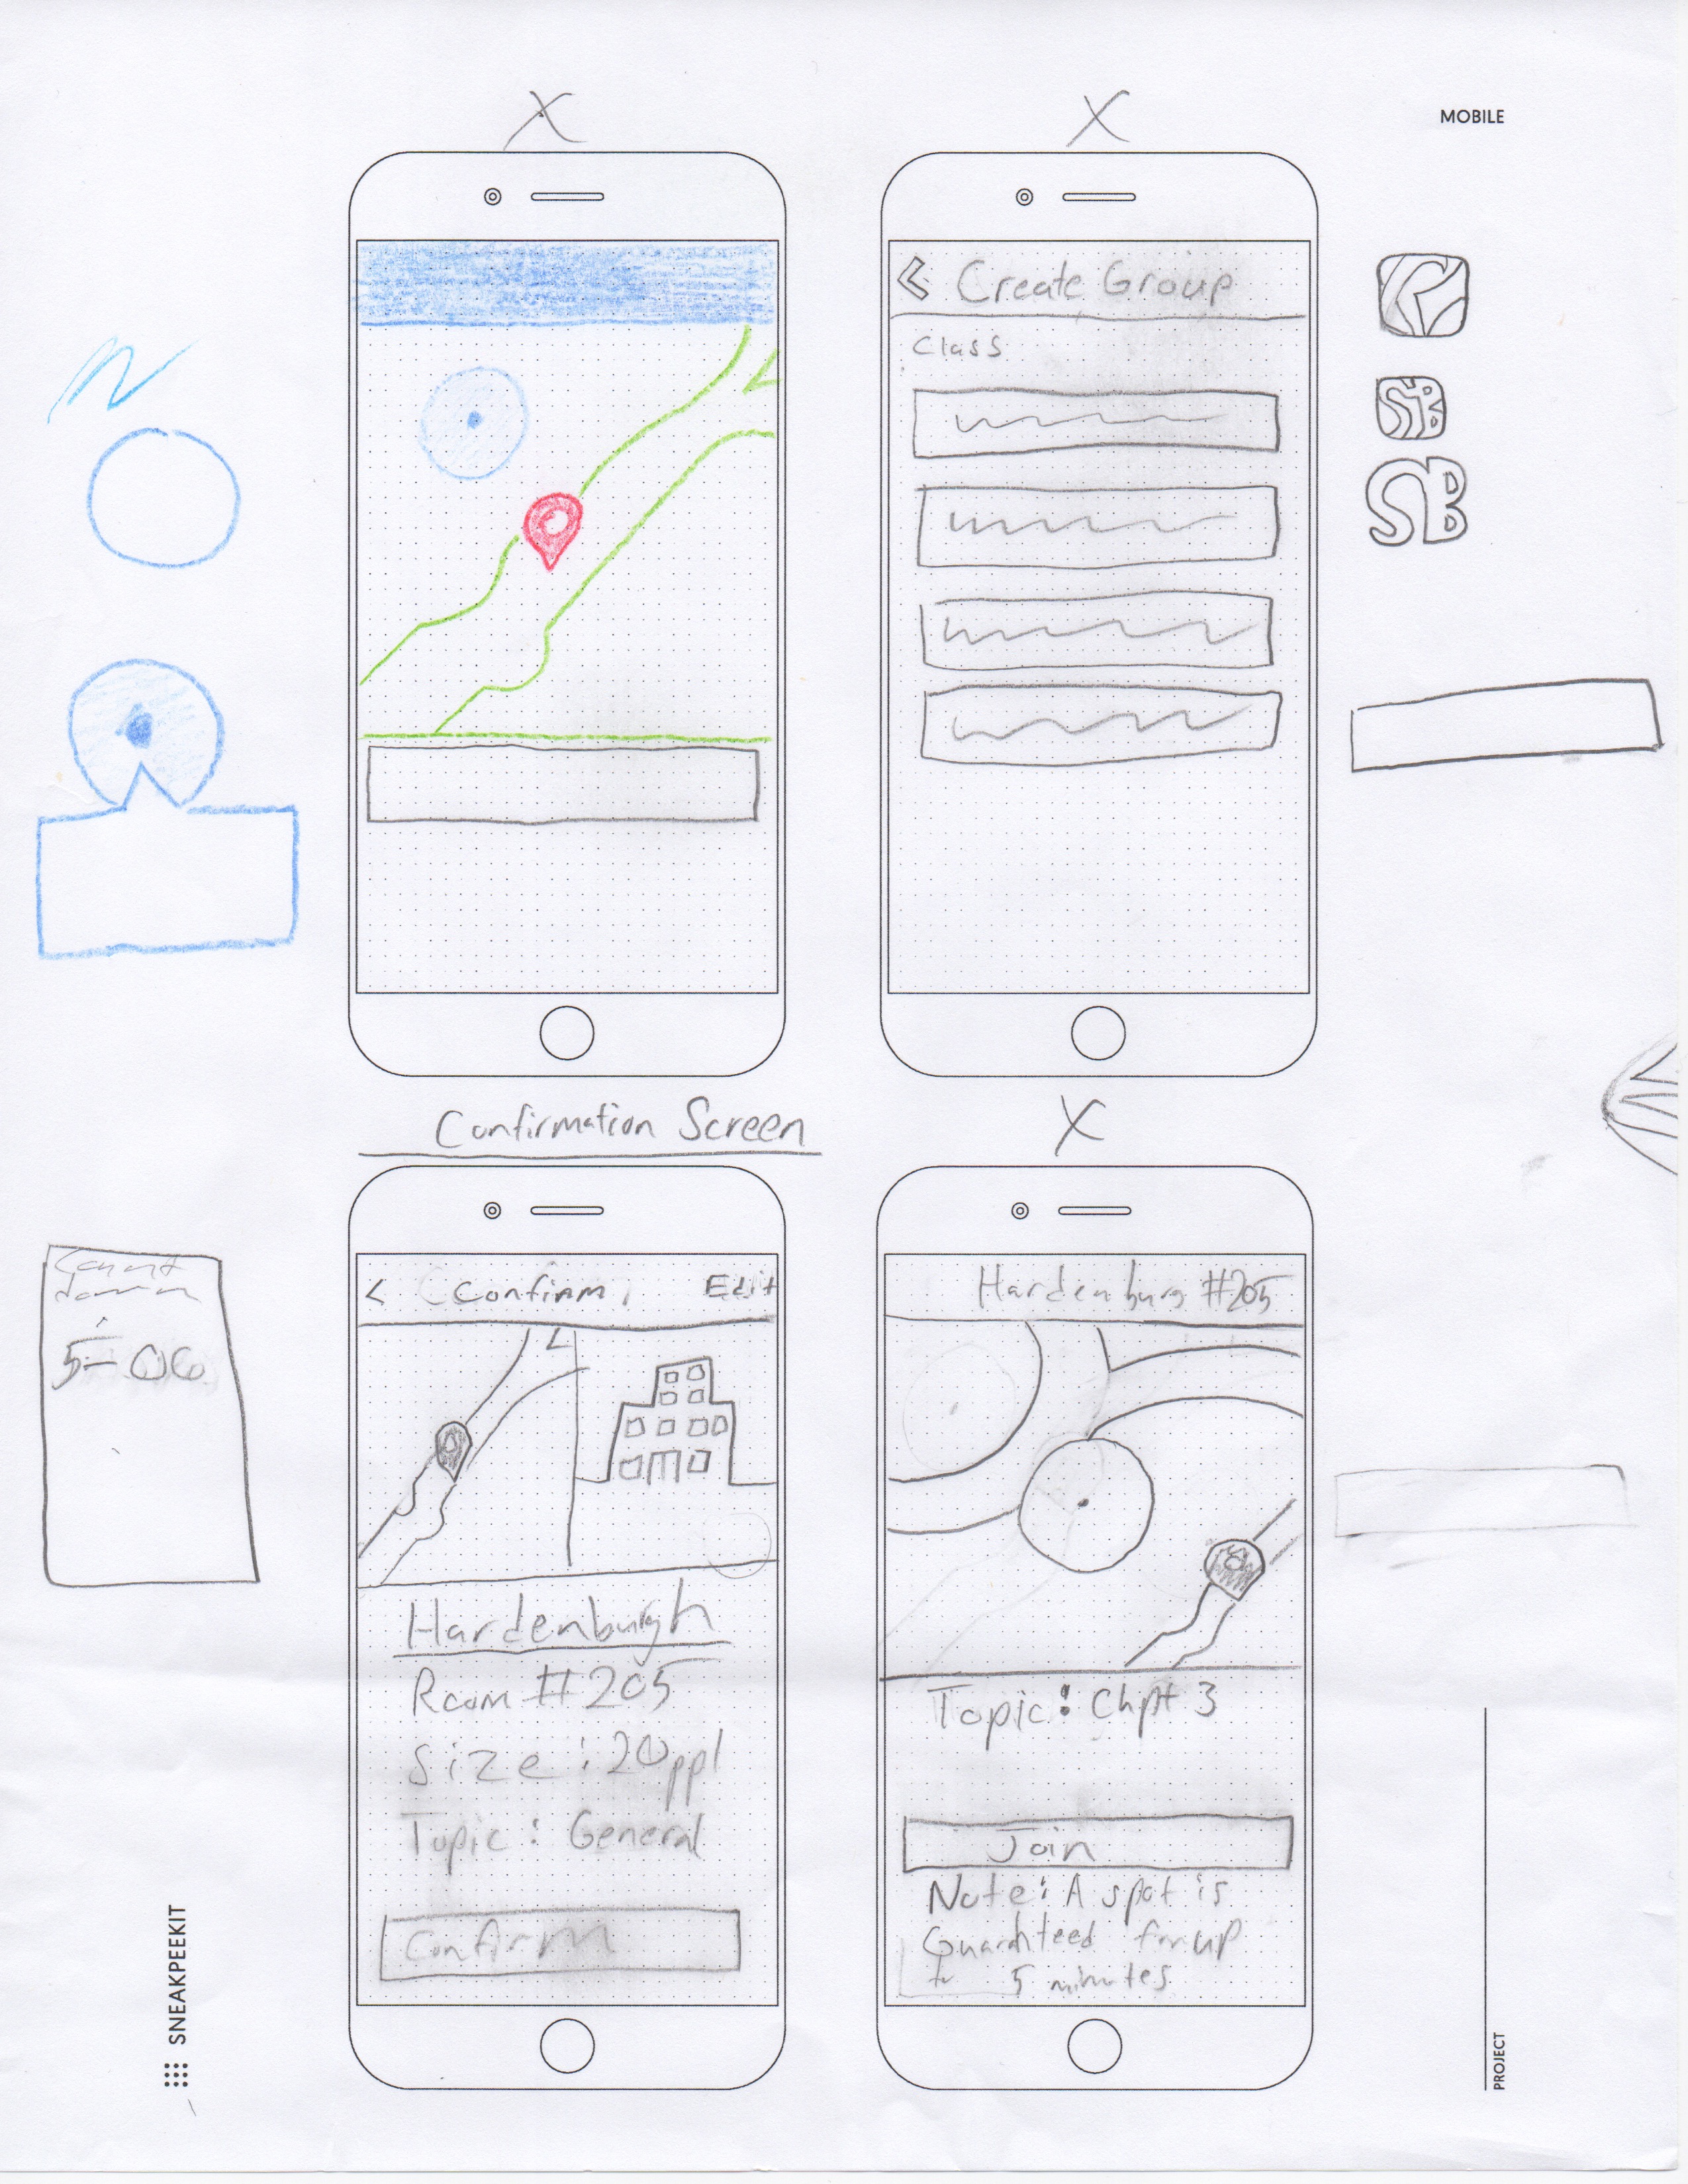 X
X
MOBILE
Create Group
Class
SB
SB
Confirmation Screen
X
Confirm
Edit
Hardenburgh
Room #205
Size: 20ppl
Topic: General
Confirm
Hardenburg #205
Topic: Chpt 3
Join
Note: A spot is
Guaranteed for up
to 5 minutes
SNEAKPEEKIT
PROJECT